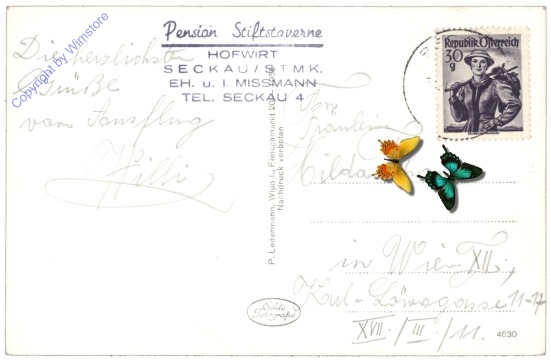 Pension Stiftstaverne
HOFWIRT
SECKAU/STMK.
EH. u. I. MISSMANN
TEL. SECKAU 4
Copyright by Wimstore
Die herzlichsten
Grüße
vom Ausflug
Willi
Republik Österreich
30
g
P. Ledermann, Wien I., Fleischmarkt 20
Nachdruck verboten
Echte
Fotografie
Fräulein
Hilda
in Wien XII.,
Karl-Löwegasse 11-17
XVII./III./11.
4630